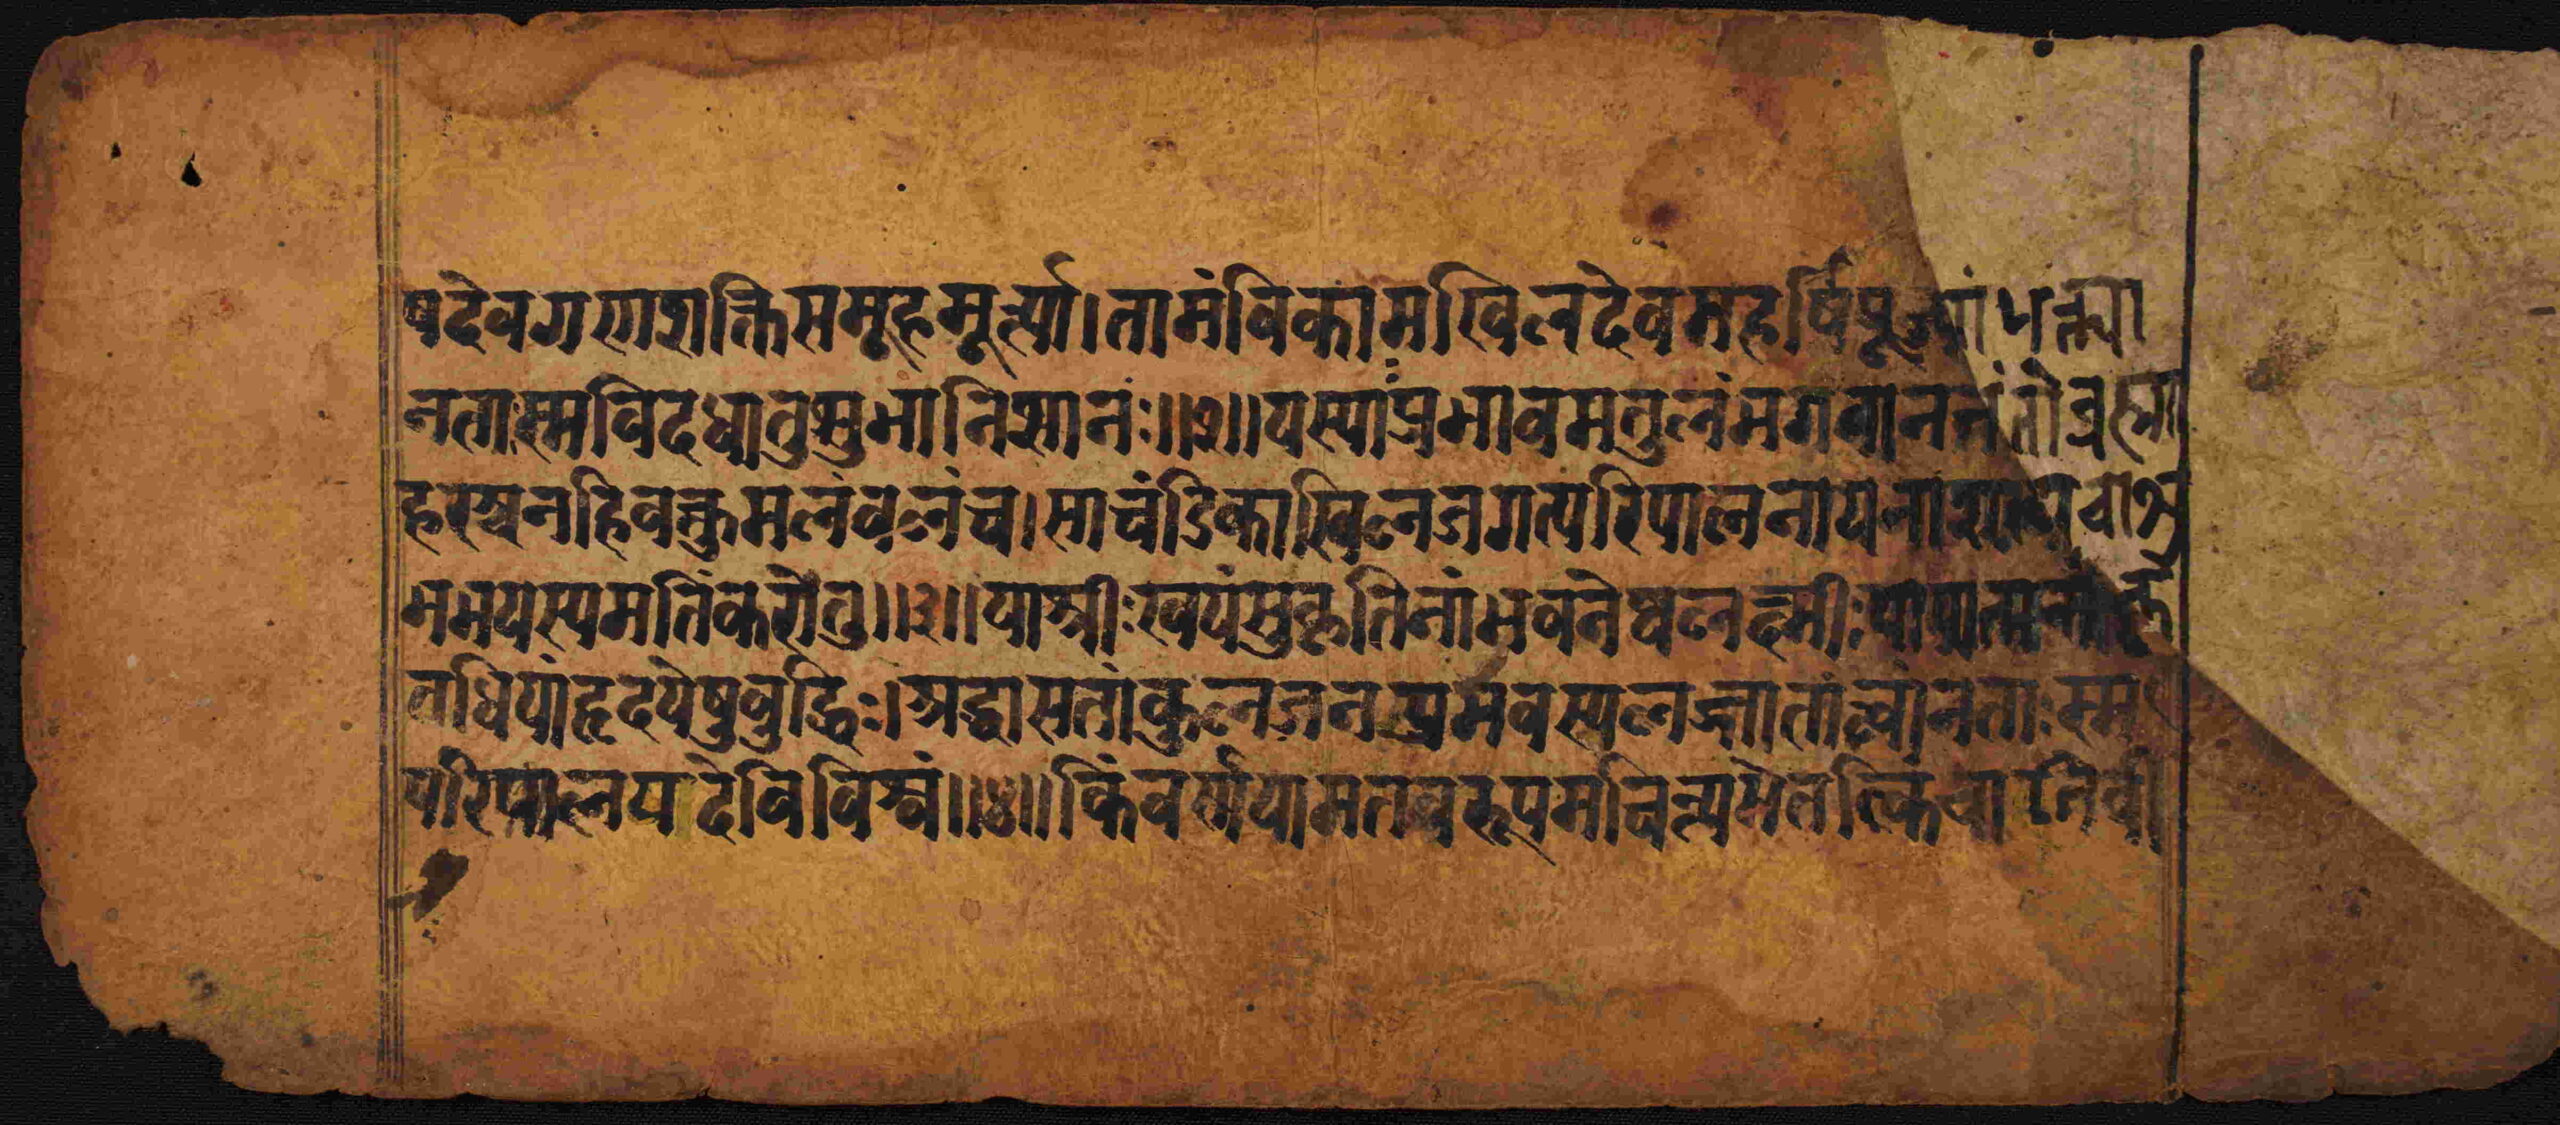 षदेवगणशक्तिसमूहमूर्त्या।तामंविकामखिलदेवमहर्षिपूज्यांभक्त्या
नताःस्मविदधातुसुभानिसानः॥२॥यस्याःप्रभावमतुलंभगवाननंतोव्रह्मा
हरश्चनहिवक्तुमलंवलंच।साचंडिकाखिलजगत्परिपालनायनाशायचासु
भभयस्यमतिंकरोतु॥३॥याश्रीःस्वयंसुकृतिनांभवनेष्वलक्ष्मीःपापात्मनांकृ
तधियांहृदयेषुवुद्धिः।श्रद्धासतांकुलजनप्रभवस्यलज्जातांत्वांनताःस्म
परिपालयदेविविश्वं॥४॥किंवर्णयामतवरूपमचिन्त्यमेतत्किंचातिवी